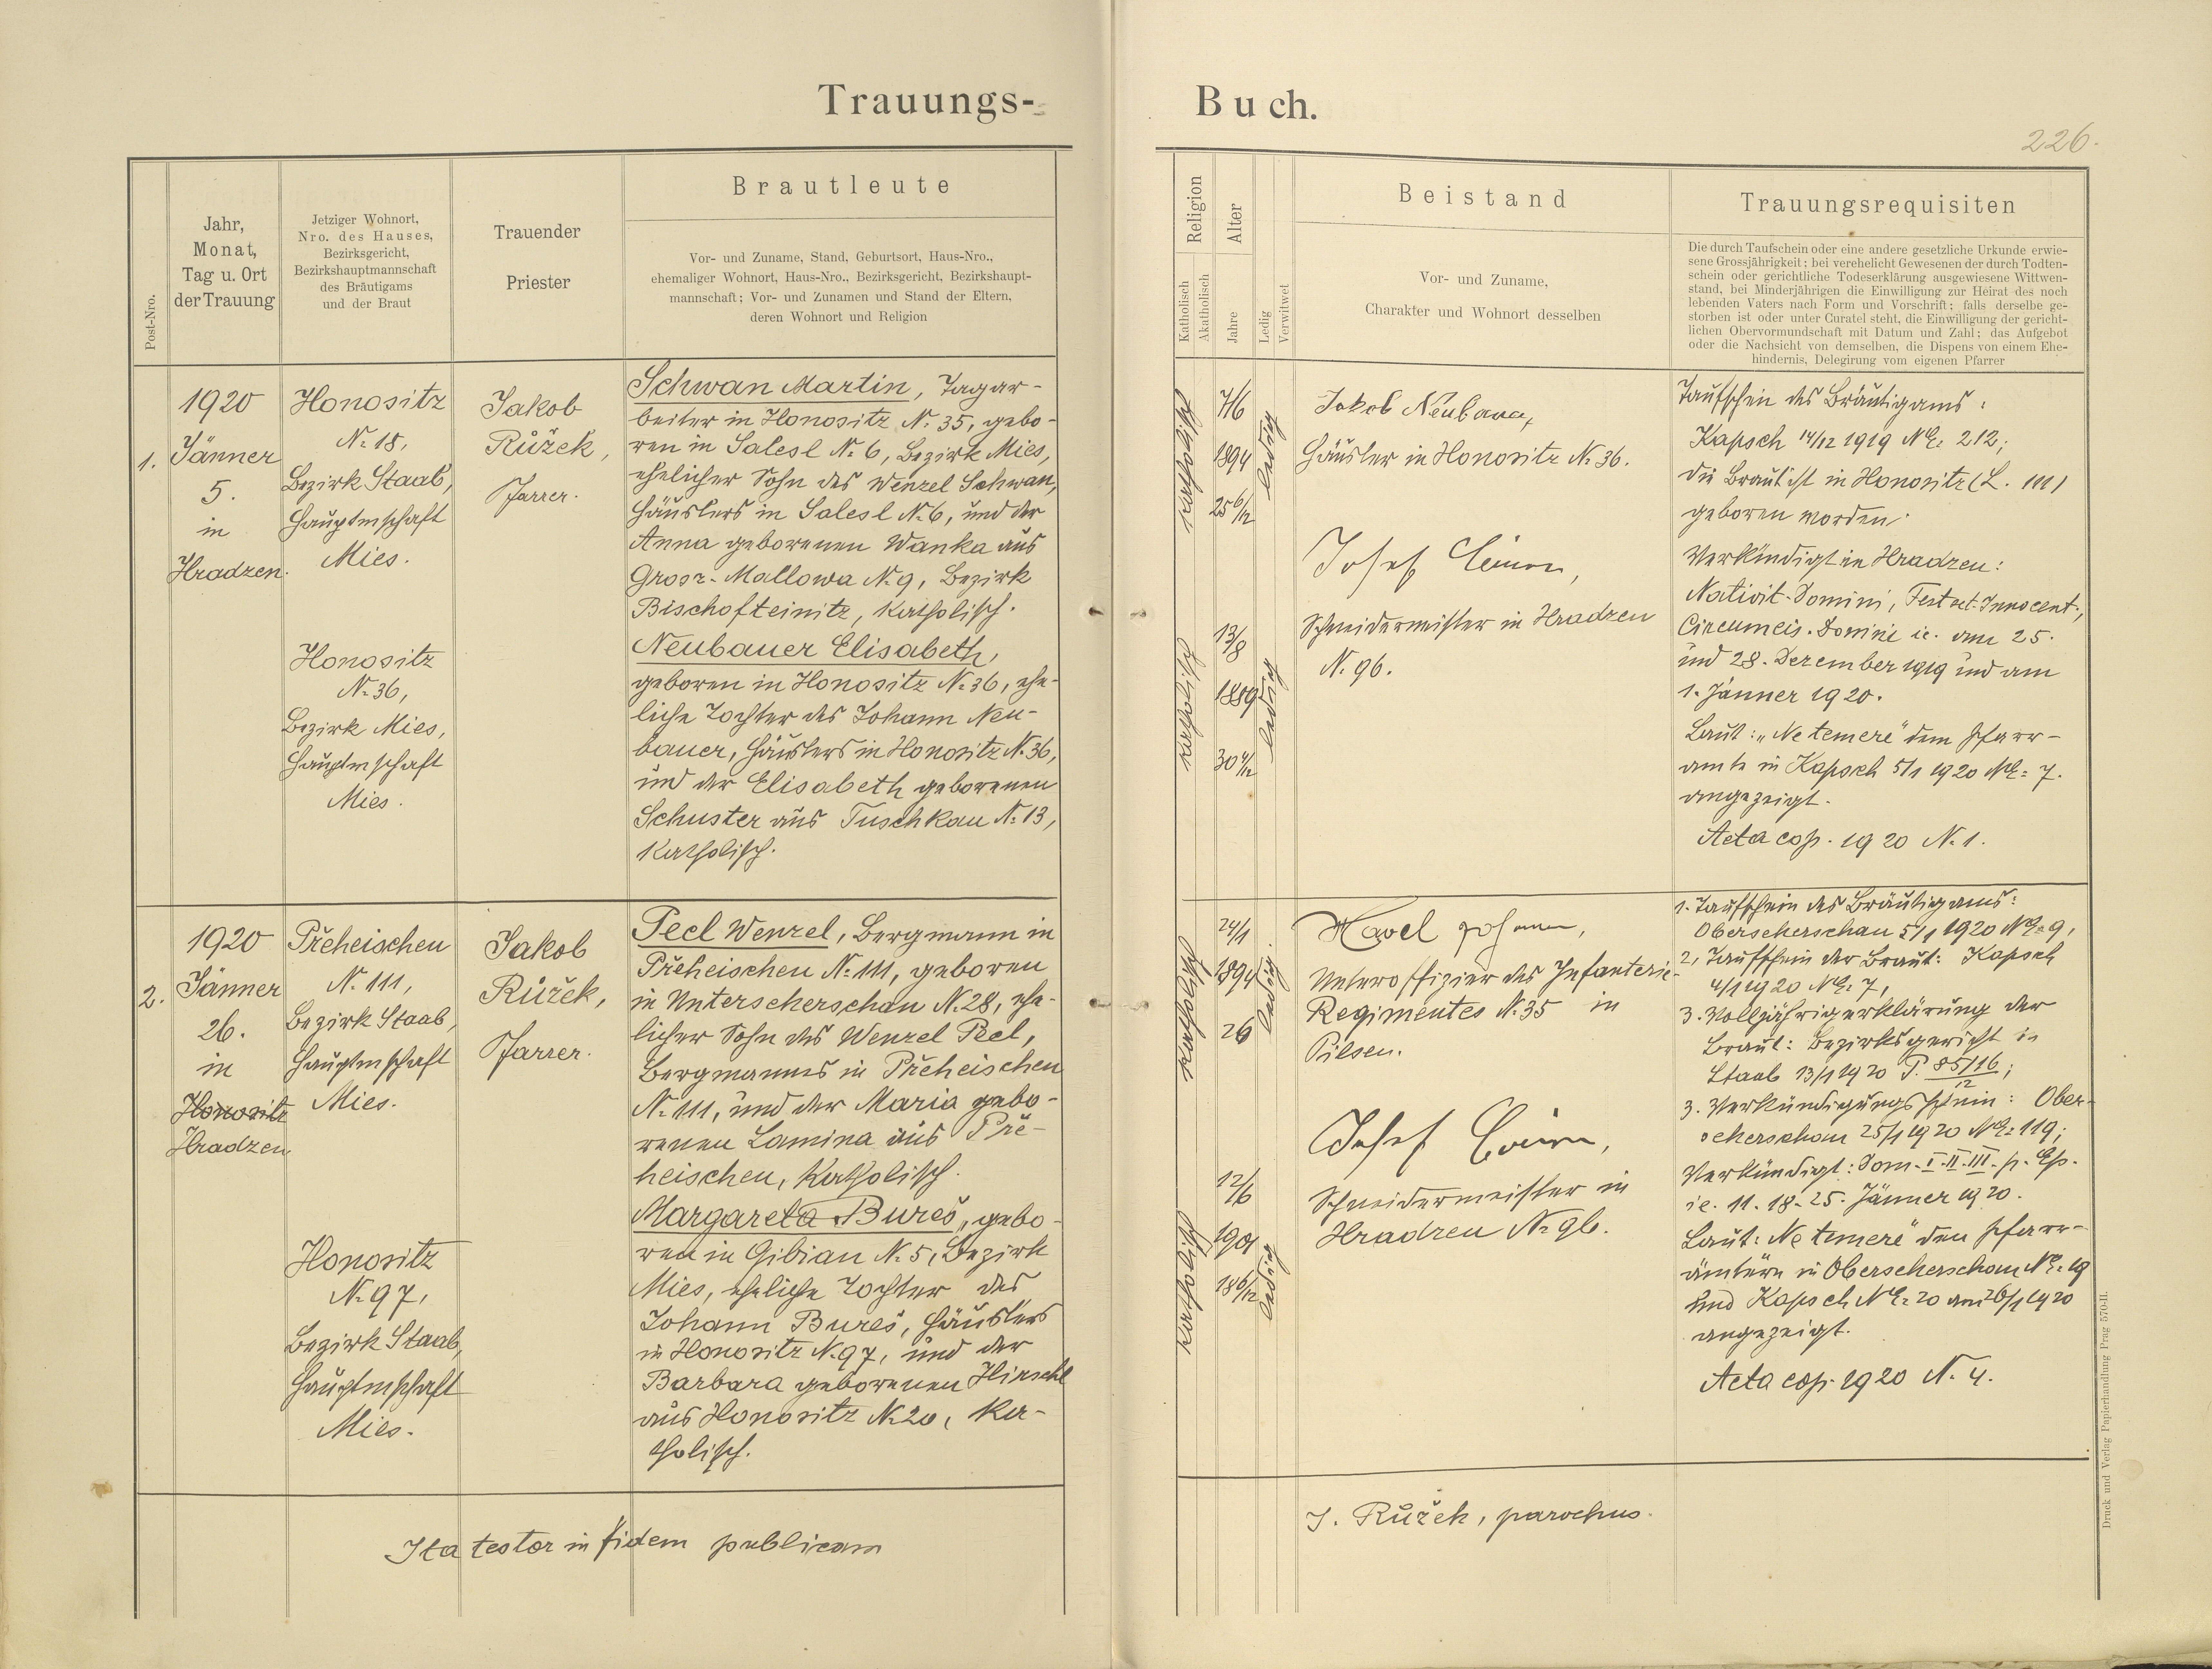 Trauungs-
Buch.
226.
Post-Nro.
Jahr,
Monat,
Tag u. Ort
der Trauung
Jetziger Wohnort,
Nro. des Hauses,
Bezirksgericht,
Bezirkshauptmannschaft
des Bräutigams
und der Braut
Trauender
Priester
Brautleute
Vor- und Zuname, Stand, Geburtsort, Haus-Nro.,
ehemaliger Wohnort, Haus-Nro., Bezirksgericht, Bezirkshaupt-
mannschaft; Vor- und Zunamen und Stand der Eltern,
deren Wohnort und Religion
Religion
Katholisch
Akatholisch
Alter
Jahre
Ledig
Verwitwet
Beistand
Vor- und Zuname,
Charakter und Wohnort desselben
Trauungsrequisiten
Die durch Taufschein oder eine andere gesetzliche Urkunde erwie-
sene Grossjährigkeit; bei verehelicht Gewesenen der durch Todten-
schein oder gerichtliche Todeserklärung ausgewiesene Wittwen-
stand, bei Minderjährigen die Einwilligung zur Heirat des noch
lebenden Vaters nach Form und Vorschrift; falls derselbe ge-
storben ist oder unter Curatel steht, die Einwilligung der gericht-
lichen Obervormundschaft mit Datum und Zahl; das Aufgebot
oder die Nachsicht von demselben, die Dispens von einem Ehe-
hindernis, Delegirung vom eigenen Pfarrer
1.
1920
Jänner
5.
in
Hradzen.
Honositz
N: 18,
Bezirk Staab,
Hauptmschaft
Mies.
Honositz
N: 36,
Bezirk Mies,
Hauptmschaft
Mies.
Jakob
Růžek,
Pfarrer.
Schwan Martin, Tagar-
beiter in Honositz N: 35, gebo-
ren in Salesl N: 6, Bezirk Mies,
ehelicher Sohn des Wenzel Schwan,
Häuslers in Salesl N: 6, und der
Anna geborenen Wanka aus
Gross-Mallowa N: 9, Bezirk
Bischofteinitz, katholisch.
Neubauer Elisabeth,
geboren in Honositz N: 36, ehe-
liche Tochter des Johann Neu-
bauer, Häuslers in Honositz N: 36,
und der Elisabeth geborenen
Schuster aus Tuschkau N: 13,
katholisch.
katholisch
7/6
1894
25 6/12
ledig
katholisch
13/8
1889
30 4/12
ledig
Jakob Neubauer,
Häusler in Honositz N: 36.
Josef
Schneidermeister in Hradzen
N: 96.
Taufschein des Bräutigams:
Kapsch 14/12 1919 NE: 212;
die Braut ist in Honositz (L. III)
geboren worden.
Verkündigt in Hradzen:
Nativit. Domini, Fest sct. Innocent.,
Circumcis. Domini ie. am 25.
und 28. Dezember 1919 und am
1. Jänner 1920.
Laut: „Ne temere" dem Pfarr-
amte in Kapsch 5/1 1920 NE: 7.
angezeigt.
Acta cop. 1920 N: 1.
2.
1920
Jänner
26.
in
Honositz
Hradzen
Přeheischen
N: 111,
Bezirk Staab,
Hauptmschaft
Mies.
Honositz
N: 97,
Bezirk Staab,
Hauptmschaft
Mies.
Jakob
Růžek,
Pfarrer.
Pecl Wenzel, Bergmann in
Přeheischen N: 111, geboren
in Unterscherschau N: 28, ehe-
licher Sohn des Wenzel Pecl,
Bergmannes in Přeheischen
N: 111, und der Maria gebo-
renen Lamina aus Pře-
heischen, katholisch.
Margareta Bureš, gebo-
ren in Gibian N: 5, Bezirk
Mies, eheliche Tochter des
Johann Bureš, Häuslers
in Honositz N: 97, und der
Barbara geborenen Hirschl
aus Honositz N: 20, ka-
tholisch.
katholisch
24/1
1894
26
ledig.
katholisch
12/6
1901
18 6/12
ledig
Havel Johann,
Unteroffizier des Infanterie-
Regimentes N: 35 in
Pilsen.
Josef
Schneidermeister in
Hradzen N: 96.
1. Taufschein des Bräutigams:
Oberscherschau 5/1 1920 NE: 9,
2, Taufschein der Braut: Kapsch
4/1 1920 NE: 7,
3. Volljährigerklärung der
Braut: Bezirksgericht in
Staab 13/1 1920 P. 85/16/12;
3. Verkündigungsschein: Ober-
scherschau 25/1 1920 NE: 119;
Verkündigt: Dom. I. II. III. p. Ep.
ie. 11. 18. 25. Jänner 1920.
Laut: Ne temere" den Pfarr-
ämtern in Oberscherschau NE: 19
und Kapsch NE: 20 am 26/1 1920
angezeigt.
Acta cop. 1920 N: 4.
Ita testor in fidem publicam
J. Růžek, parochus.
Druck und Verlag Papierhandlung Prag 570-II.